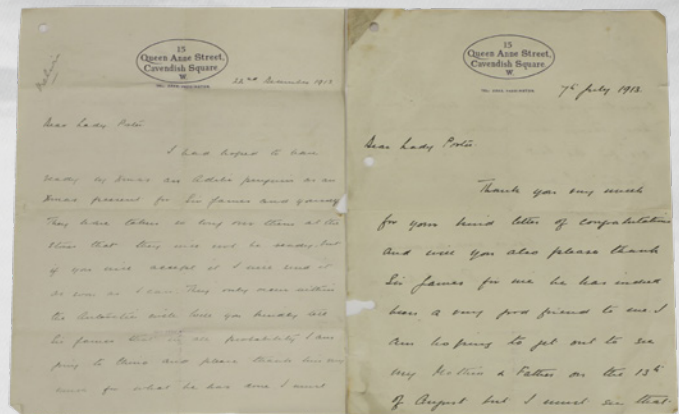 15
Queen Anne Street,
Cavendish Square
W.
22nd December 1913
Dear Lady Porter
I had hoped to have
ready by Xmas an Adelie penguin as an
Xmas present for Sir James and yourself
They have taken so long over them at the
that they will not be ready, but
if you will accept it I will send it
as soon as I can. They only roam within
the Antarctic circle
Sir James that in all probability I am
going to and please thank him very
much for what he has done. I must
15
Queen Anne Street,
Cavendish Square
W.
7th July 1913.
Dear Lady Porter.
Thank you very much
for your kind letter of congratulations
and will you also please thank
Sir James for me he has indeed
been a very good friend to me. I
am hoping to get out to see
my Mother & Father on the 13th
of August but I must see that